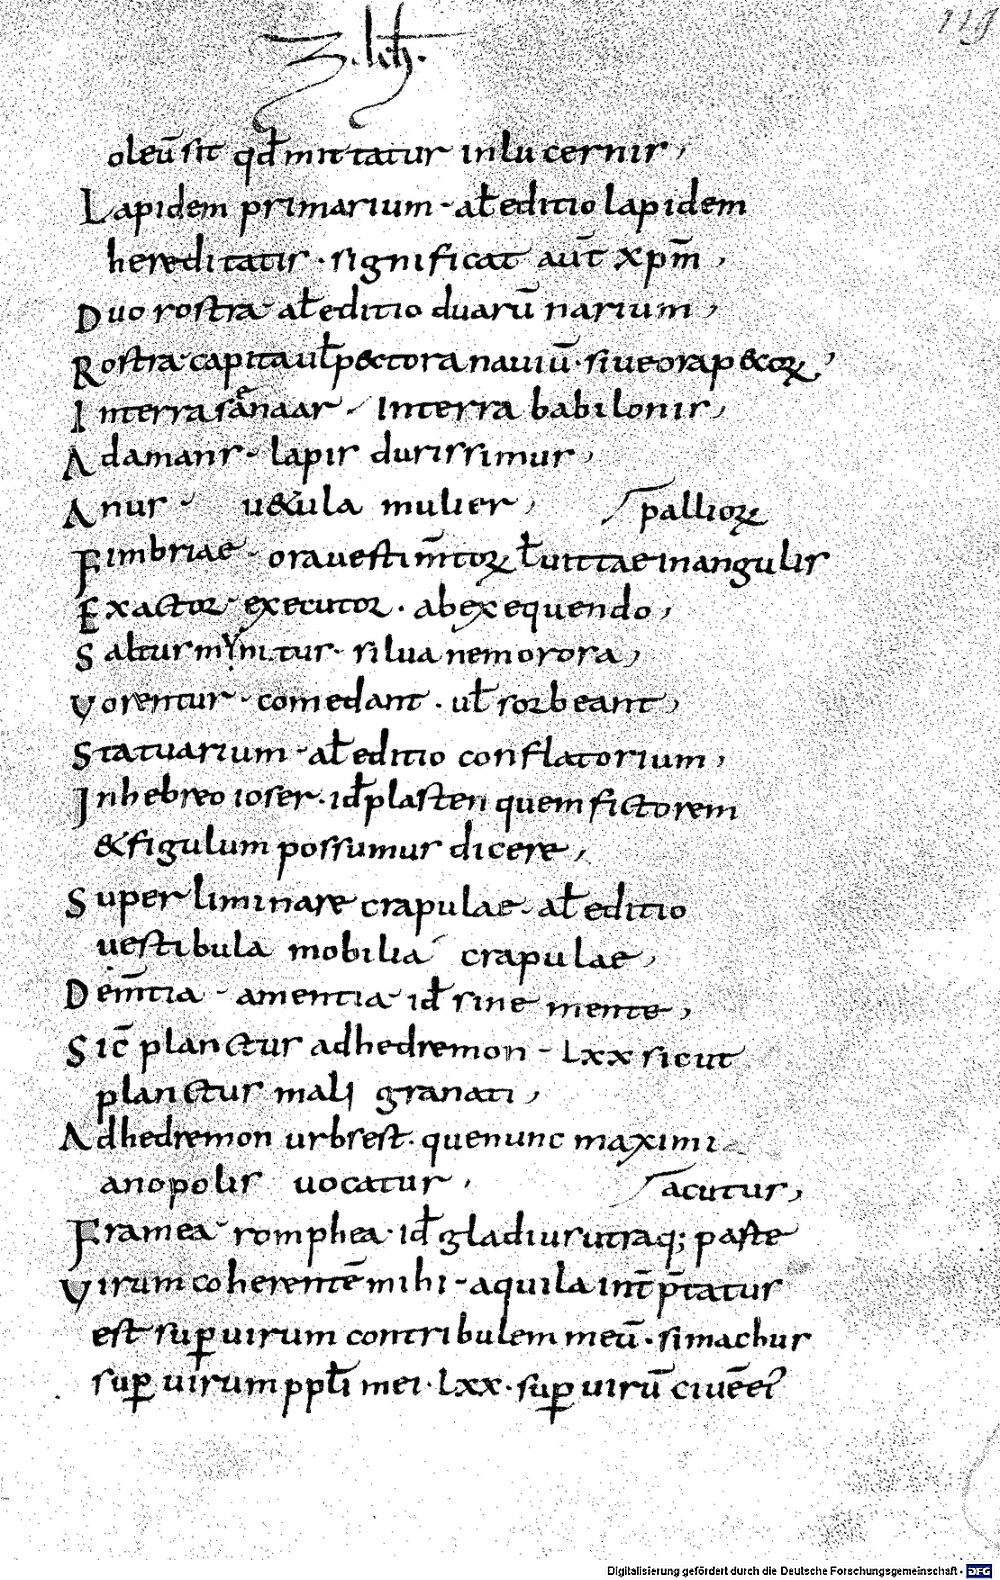 119
oleū sit qđ mittatur in lucernis,
Lapidem primarium - aƚ editio lapidem
hereditatis · significat aut̄ xpm̄,
Duo rostra - aƚ editio duarū narium,
Rostra capita uƚ pectora nauiū · siue ora pecoꝝ,
In terra sænaar - In terra babilonis,
Adamans - lapis durissimus,
Anus - uetula mulier, palliorꝝ
Fimbriae - ora uestim̄toꝝ ƚ uittae in angulis
Exactor - executor · ab exequendo,
Saltus mynitus - silua nemorosa,
Vorentur - comedant · uƚ sorbeant,
Statuarium - aƚ editio conflatorium,
In hebreo ioser · iđ plasten quem fictorem
& figulum possumus dicere,
Super liminare crapulae - aƚ editio
uestibula mobilia crapulae,
Dem̄tia - amentia iđ sine mente,
Sic̄ planctus adhedremon - Lxx sicut
planctus mali granati,
Adhedremon urbs est · que nunc maximi
anopolis uocatur, acutus,
Framea - romphea · iđ gladius utraq; parte
Virum coherentē mihi - aquila int̄p̄tatus
est suꝑ uirum contribulem meū · simachus
suꝑ uirum ppƚi mei · Lxx · suꝑ uirū ciuē ei'
Digitalisierung gefördert durch die Deutsche Forschungsgemeinschaft - DFG